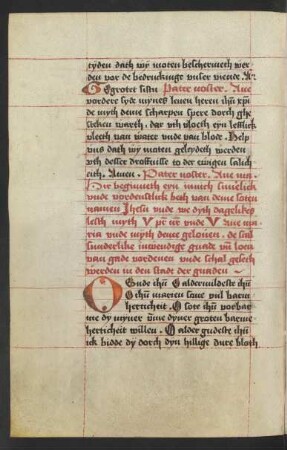 tyden dath wy moten beschermeth wer-
den vor de bedruckinge vnser viende. A.
Gegroter sistu Pater noster. Aue
vordere syde mynes leuen heren ihu xpi
de myth deme scharpen spere dorch ghe
steken warth. dar vth vloth eyn
vleeth van water vnde van blode. Help
vns dath wy moten geleydeth werden
vth desser droffnisse to der ewigen salich
eith. Amen. Pater noster. Aue ma.
Hir beginneth eyn innich
vnde beth van deme soten
namen Ihesu vnde we dyth dagelikes
lesth myth V pr nr vnde V Aue ma
ria vnde myth deme gelouen. de sal
sunderlike inwendige gnade vnde loen
van gade vordenen vnde schal geseth
werden in den stadt der gnaden
O Gude ihu O aldermildeste ihu
O ihu marien sone vul barm
herticheit. O sote ihu vorbar
me dy myner vme dyner groten barme
herticheit willen. O alder gudeste ihu
ik bidde dy dorch dyn hillige dure bloth